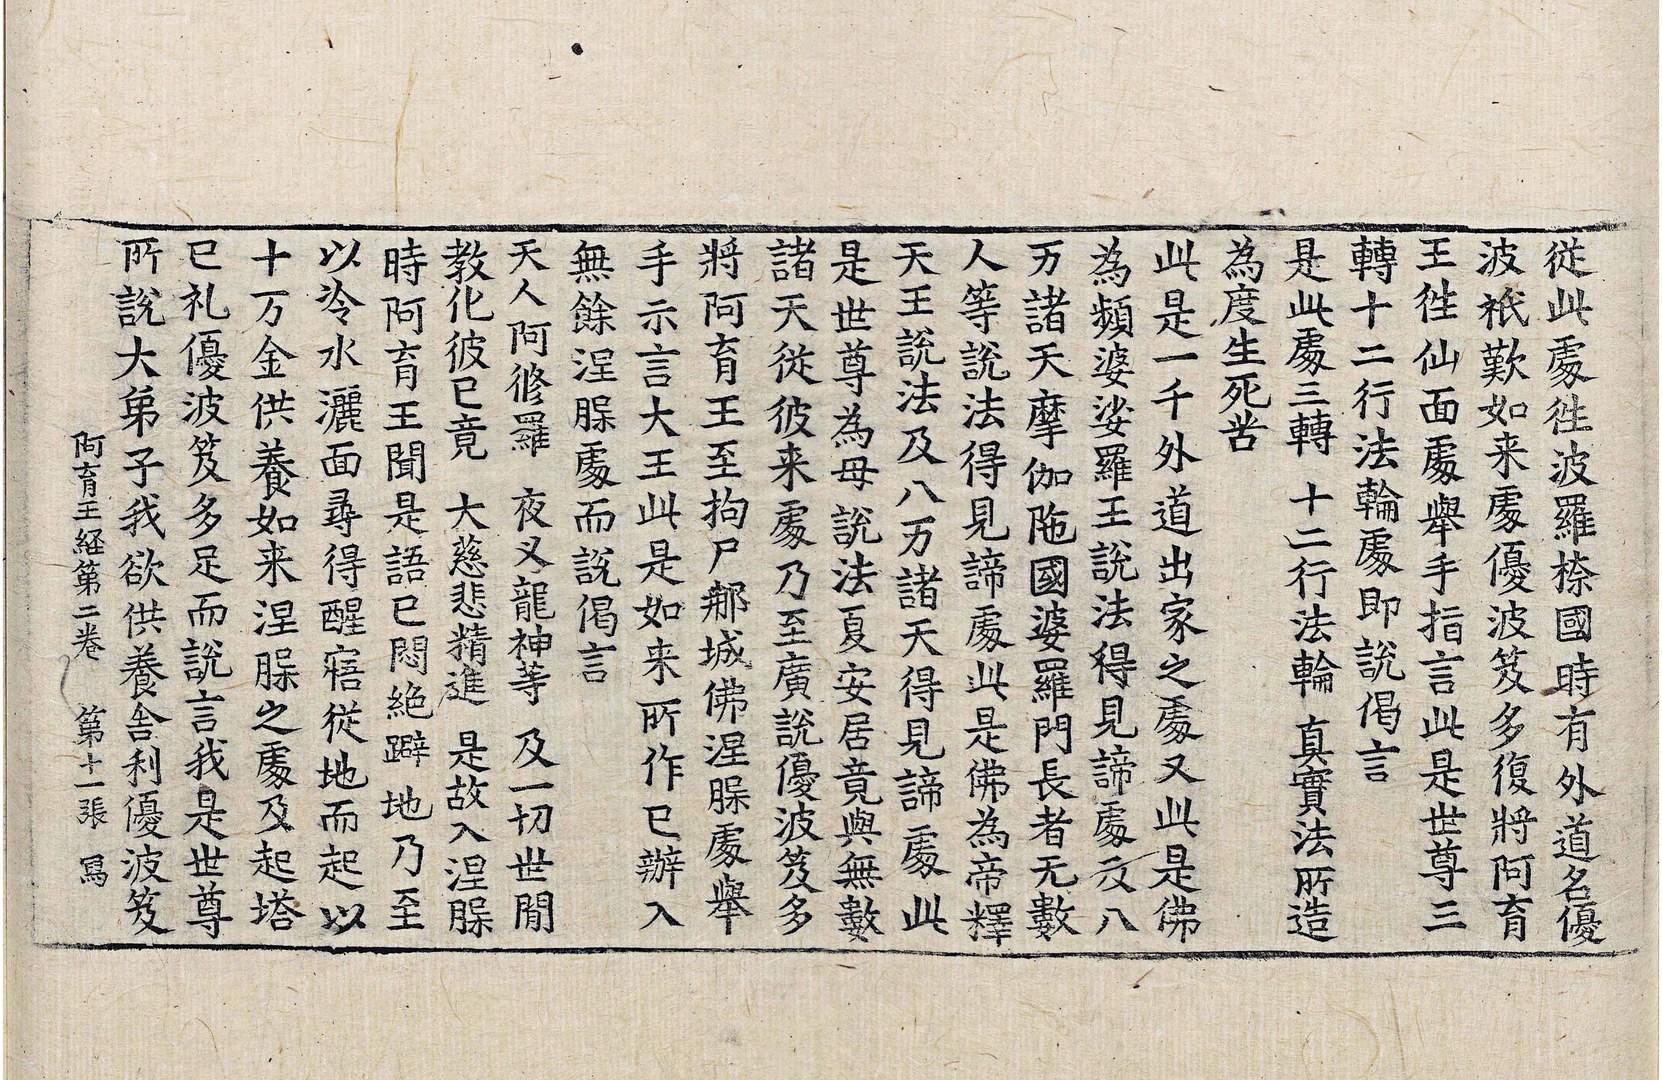 從此處徃波羅㮈國時有外道名優
波祇歎如来處優波笈多復將阿育
王徃仙面處舉手指言此是世尊三
轉十二行法輪處即說偈言
是此處三轉 十二行法輪 真實法所造
為度生死苦
此是一千外道出家之處又此是佛
為頻婆娑羅王說法得見諦處及八
万諸天摩伽陁國婆羅門長者无數
人等說法得見諦處此是佛為帝釋
天王說法及八万諸天得見諦處此
是世尊為母說法夏安居竟與無數
諸天從彼来處乃至廣說優波笈多
將阿育王至拘尸那城佛涅槃處舉
手示言大王此是如来所作已辦入
無餘涅槃處而說偈言
天人阿修羅 夜叉龍神等 及一切世間
教化彼已竟 大慈悲精進 是故入涅槃
時阿育王聞是語已悶絶躃地乃至
以冷水灑面尋得醒寤從地而起以
十万金供養如来涅槃之處及起塔
已礼優波笈多足而說言我是世尊
所說大弟子我欲供養舍利優波笈
阿育王経第二卷 第十一張 寫